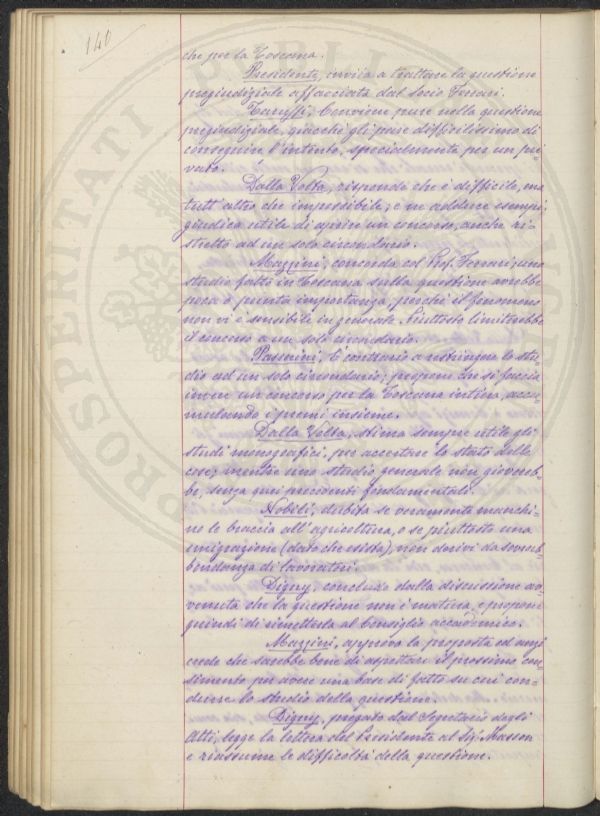 140
che per la Toscana.
Presidente, invita a trattare la questione
pregiudiziale affacciata dal socio Ferrari.
Taruffi, Conviene pure nella questione
pregiudiziale, giacchè gli pare difficilissimo di
conseguire l'intento, specialmente per un pri-
vato.
Dalla Volta, risponde che è difficile, ma
tutt'altro che impossibile; e ne adduce esempi;
giudica utile di aprire un concorso, anche ri-
stretto ad un solo circondario.
Mazzini, concorda col Prof. Ferrari; uno
studio fatto in Toscana sulla questione avrebbe
poca o punta importanza, perchè il fenomeno
non vi è sensibile in generale. Piuttosto limiterebbe
il concorso a un solo circondario.
Passerini, È contrario a restringere lo stu-
dio ad un solo circondario; propone che si faccia
invece un concorso per la Toscana intera, accu-
mulando i premi insieme.
Dalla Volta, stima sempre utile gli
studi monografici, per accertare lo stato delle
cose; mentre uno studio generale non giovereb-
be, senza quei precedenti fondamentali.
Nobili, dubita se veramente manchi-
no le braccia all'agricoltura, o se piuttosto una
emigrazione (dato che esista), non derivi da sovrab-
bondanza di lavoratori.
Digny, conclude dalla discussione av-
venuta che la questione non è matura, e propone
quindi di rimetterla al Consiglio accademico.
Mazzini, approva la proposta ed anzi
crede che sarebbe bene di aspettare il prossimo cen-
simento per avere una base di fatto su cui con-
durre lo studio della questione.
Digny, pregato dal Segretario degli
Atti, legge la lettera del Presidente al Sigr Masson
e riassume le difficoltà della questione.
PROSPERITATI PUBLICAE